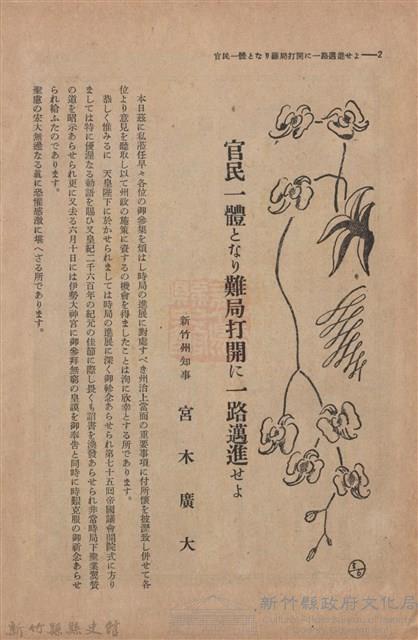 官民一體となり難局打開に一路邁進せよ——2
官民一體となり難局打開に一路邁進せよ
新竹州知事 宮木廣大
本日茲に私涖任早々各位の御參集を煩はし時局の進展に對處すべき州治上當面の重要事項に付所懷を披瀝致し併せて各
位より意見を聽取し以て州政の施策に資するの機會を得ましたことは洵に欣幸とする所であります。
恭しく惟みるに 天皇陛下に於かせられましては時局の進展に深く御軫念あらせられ第七十五回帝國議會開院式に方り
ましては特に優渥なる勅語を賜ひ又皇紀二千六百年の紀元の佳節に際し畏くも詔書を渙發あらせられ非常時局下聖業翼贊
の道を昭示あらせられ更に又去る六月十日には伊勢大神宮に御參拜無窮の皇謨を御奉告と同時に時艱克服の御祈念あらせ
られ給ふたのであります。
聖慮の宏大無邊なる眞に恐懼感激に堪へざる所であります。
新竹縣縣史館
新竹縣政府文化局